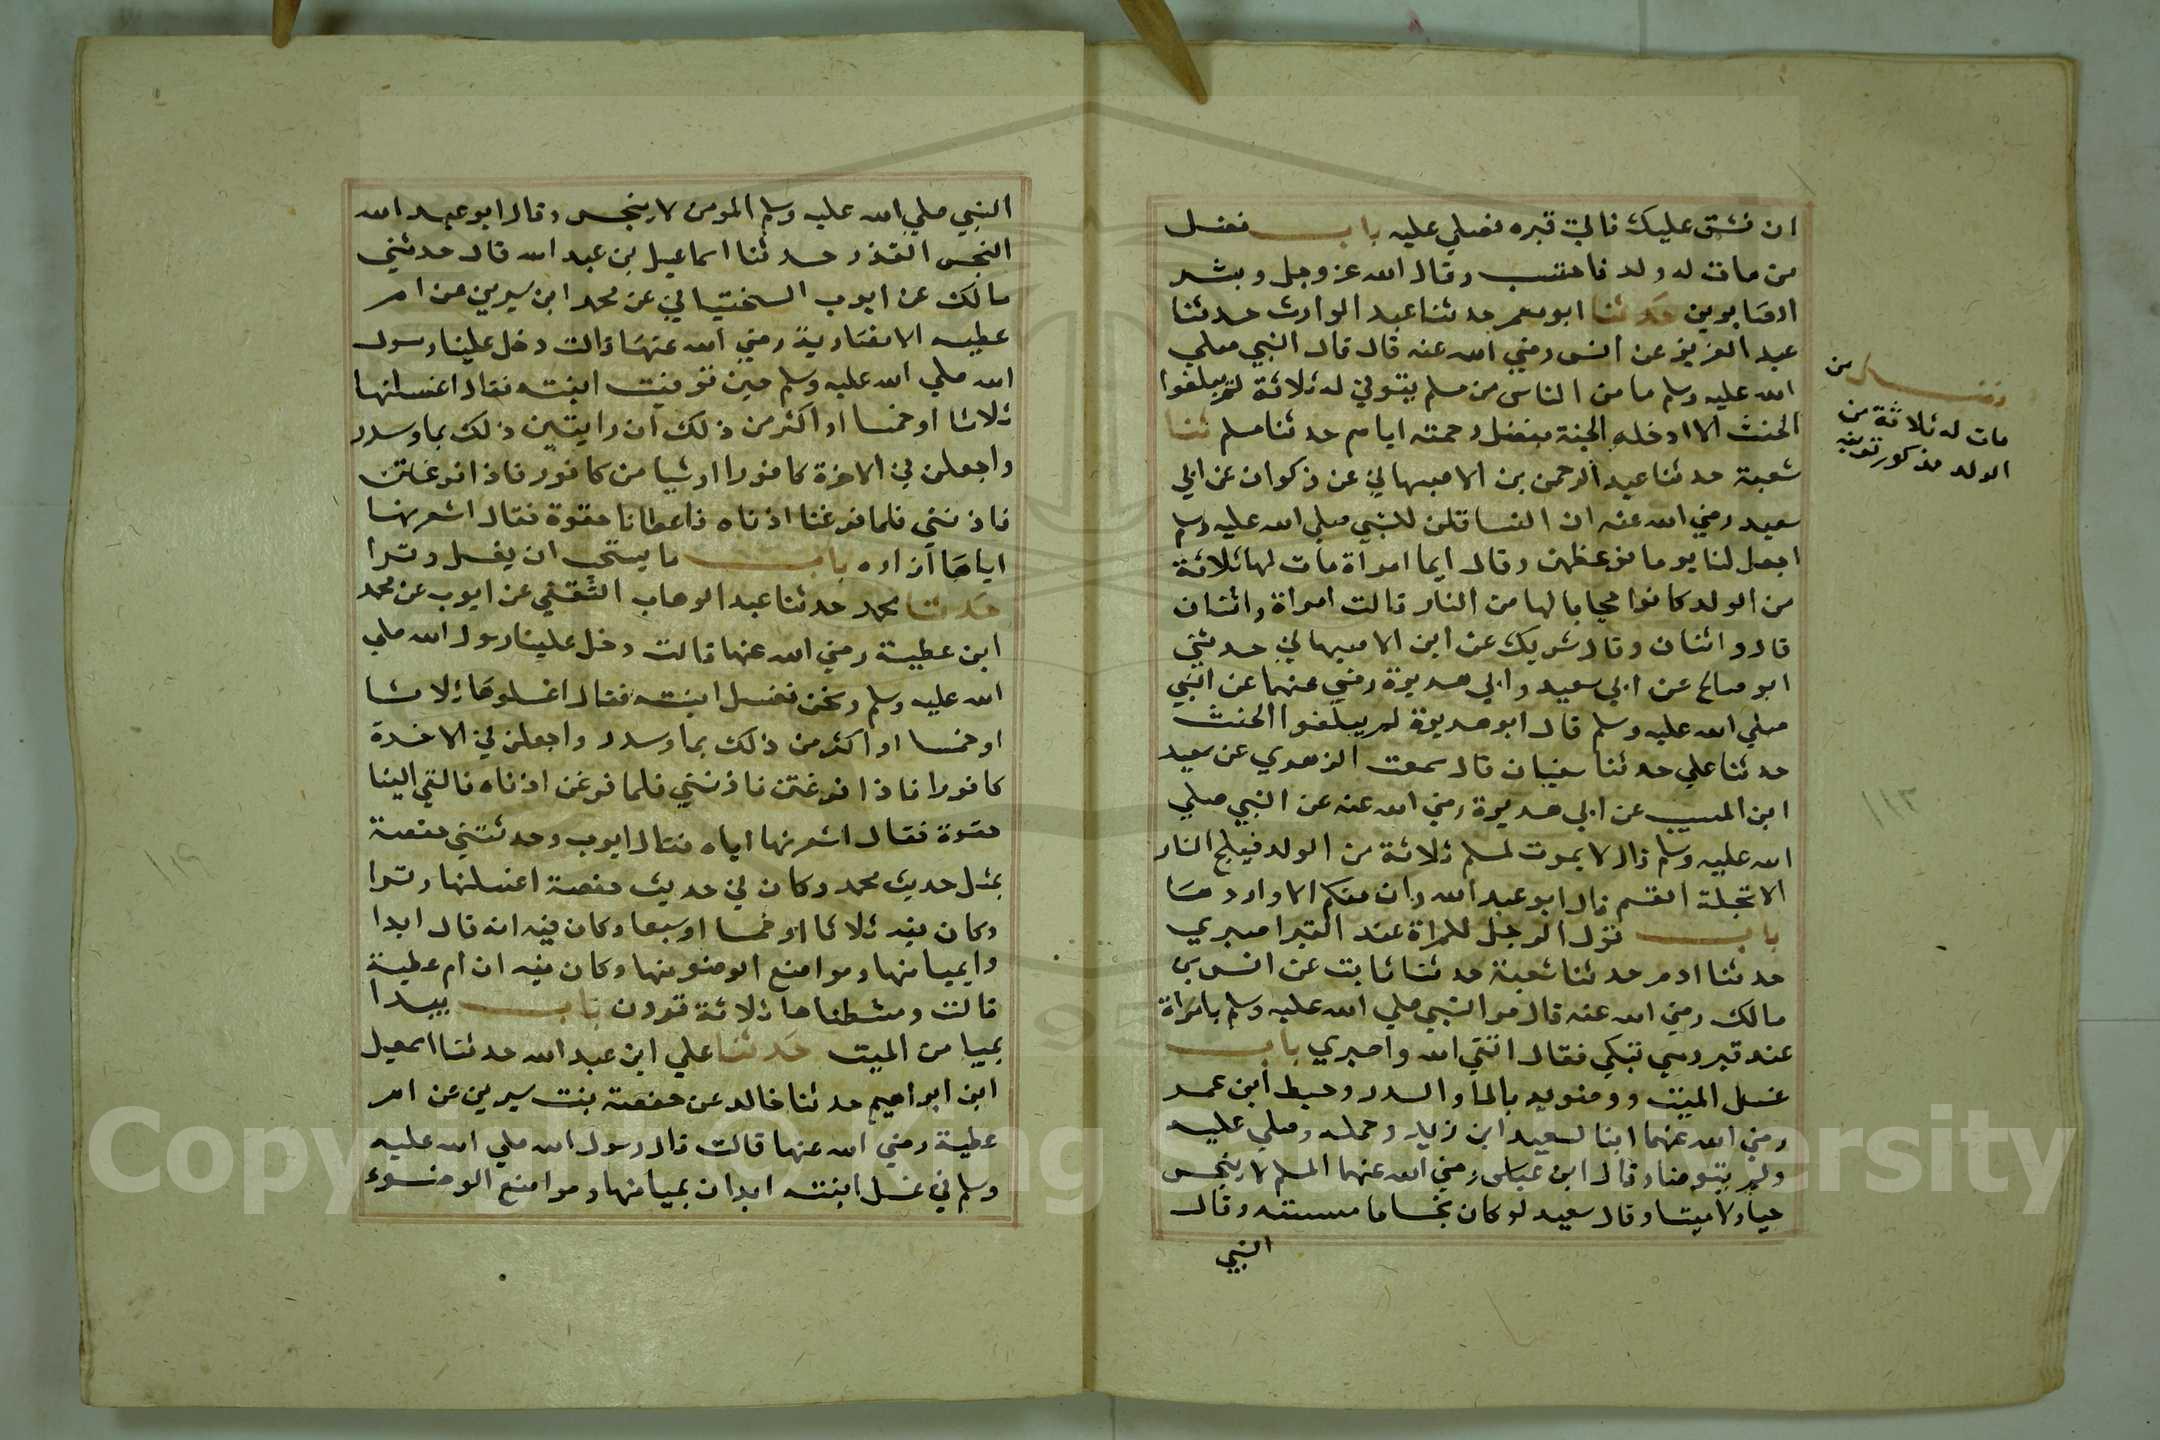 ان نشق عليك فاتي قبره فصلي عليه باب فضل
من مات له ولد فاحتسب وقال الله عز وجل وبشر
الصابرين حدثنا ابو معمر حدثنا عبد الوارث حدثنا
عبد العزيز عن انس رضي الله عنه قال قال النبي صلي
الله عليه وسلم ما من الناس من مسلم يتوفي له ثلاثة لم يبلغوا
الحنث الا ادخله الجنة بفضل رحمته اياهم حدثنا مسلم ثنا
شعبة حدثنا عبد الرحمن بن الاصبهاني عن ذكوان عن ابي
سعيد رضي الله عنه ان النسا قلن للنبي صلي الله عليه وسلم
اجعل لنا يوما فوعظهن وقال ايما امراة مات لها ثلاثة
من الولد كانوا حجابا لها من النار قالت امراة واثنان
قال واثنان وقال شريك عن ابن الاصبهاني حدثني
ابو صالح عن ابي سعيد وابي هريرة رضي عنهما عن النبي
صلي الله عليه وسلم قال ابو هريرة لم يبلغوا الحنث
حدثنا علي حدثنا سفيان قال سمعت الزهري عن سعيد
ابن المسيب عن ابي هريرة رضي الله عنه عن النبي صلي
الله عليه وسلم قال لا يموت لمسلم ثلاثة من الولد فيلج النار
الا تحلة القسم قال ابو عبد الله وان منكم الا واردها
باب قول الرجل للمراة عند القبر اصبري
حدثنا ادم حدثنا شعبة حدثنا ثابت عن انس بن
مالك رضي الله عنه قال مر النبي صلي الله عليه وسلم بامراة
عند قبر وهي تبكي فقال اتقي الله واصبري باب
غسل الميت ووضويه بالما والسدر وحنط ابن عمر
رضي الله عنهما ابنا لسعيد ابن زيد وحمله وصلي عليه
ولم يتوضا وقال ابن عباس رضي الله عنهما المسلم لا ينجس
حيا ولا ميتا وقال سعيد لو كان نجسا ما مسسته وقال
النبي
فضل من
مات له ثلاثة من
الولد مذكورتين
١١٣
النبي صلي الله عليه وسلم المومن لا ينجس وقال ابو عبد الله
النجس القذر حدثنا اسماعيل بن عبد الله قال حدثني
مالك عن ايوب السختياني عن محمد ابن سيرين عن ام
عطيه الانصارية رضي الله عنها قالت دخل علينا رسول
الله صلي الله عليه وسلم حين توفيت ابنته فقال اغسلنها
ثلاثا او خمسا او اكثر من ذلك ان رايتين ذلك بما وسدر
واجعلن في الاخرة كافورا او شيا من كافور فاذا فرغتن
فاذنني فلما فرغنا اذناه فاعطانا حقوة فقال اشعرنها
اياها ازاره باب ما يستحب ان يغسل وترا
حدثنا محمد حدثنا عبد الوهاب الثقفي عن ايوب عن محمد
ابن عطية رضي الله عنها قالت دخل علينا رسول الله صلي
الله عليه وسلم ونحن نغسل ابنته فقال اغسلوها ثلاثا
او خمسا او اكثر من ذلك بما وسدر واجعلن في الاخرة
كافورا فاذا فرغتن فاذنني فلما فرغن اذناه فالقي الينا
حقوة فقال اشعرنها اياه فقال ايوب وحدثتني حفصة
بمثل حديث محمد وكان في حديث حفصة اغسلنها وترا
وكان فيه ثلاثا او خمسا او سبعا وكان فيه انه قال ابدا
وايميا منها ومواضع الوضو منها وكان فيه ان ام عطية
قالت ومشطناها ثلاثة قرون باب يبدا
بميا من الميت حدثنا علي ابن عبد الله حدثنا اسمعيل
ابن ابراهيم حدثنا خالد عن حفصة بنت سيرين عن ام
عطية رضي الله عنها قالت قال رسول الله صلي الله عليه
وسلم في غسل ابنته ابدان بميامنها ومواضع الوضوء
١١٤
Copyright © King Saud University